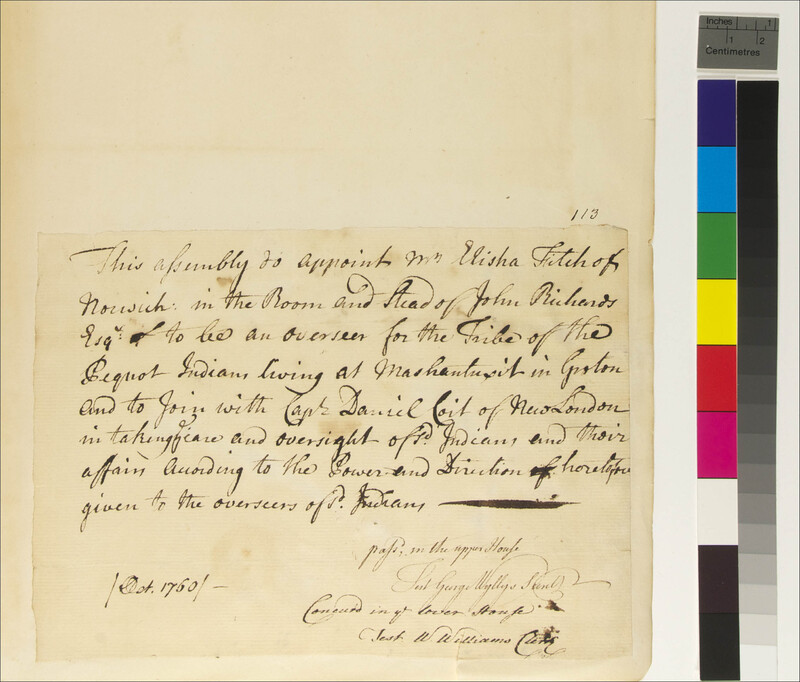 Inches 1
1 2
Centimetres
113
This assembly do appoint Mr Elisha Fitch of
Norwich in the Room and Stead of John Richards
Esqr. to be an overseer for the Tribe of the
Pequot Indians living at Mashantuxit in Groton
and to Join with Capt. Daniel Coit of New London
in taking ye care and oversight of sd. Indians and their
affairs Acording to the Power and Direction heretofore
given to the overseers of sd. Indians
pass'd. in the upper House
Test George Wyllys Secrety
[Oct. 1760]
Concurd in ye lower House
Test W Williams Clerk